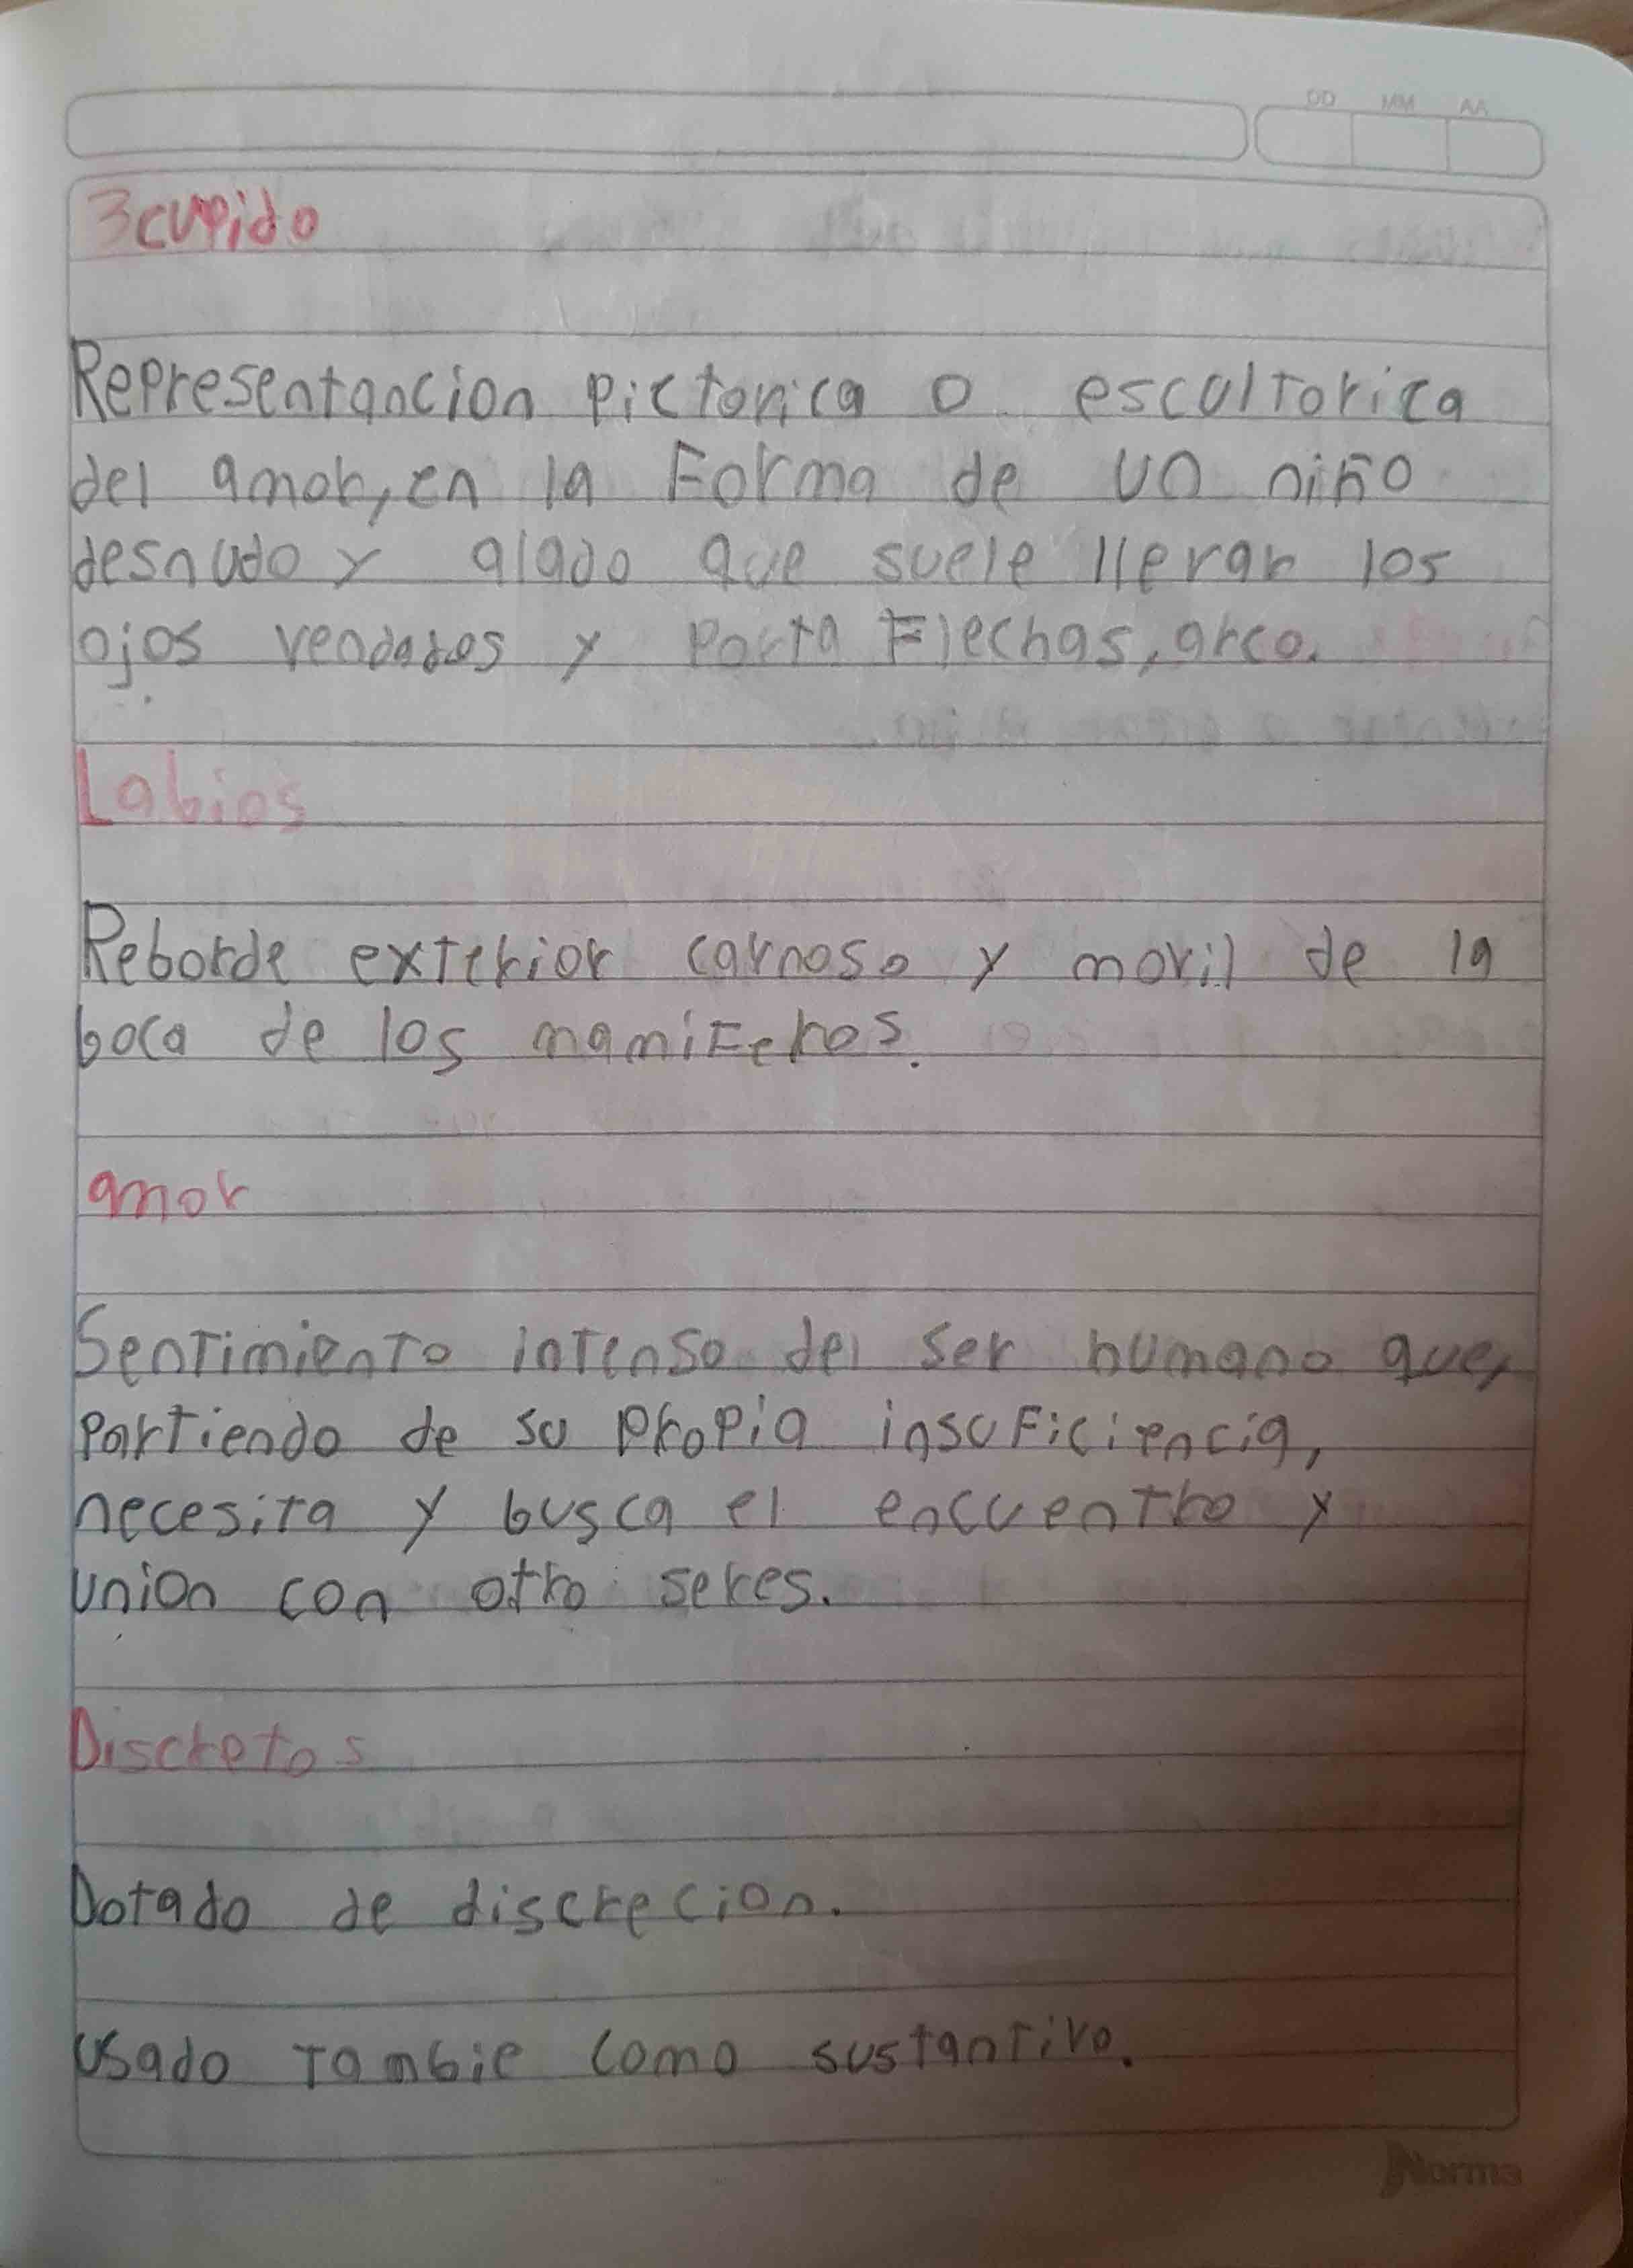 DD MM AA
3 cupido
Representancion pictorica o escultorica
del amor, en la Forma de un niño
desnudo y alado que suele llevar los
ojos vendados y porta Flechas, arco.
Labios
Reborde exterior carnoso y movil de la
boca de los mamiFeros.
amor
Sentimiento intenso del ser humano que,
partiendo de su propia insuFiciencia,
necesita y busca el encuentro y
union con otro seres.
Discretos
Dotado de discrecion.
usado tambie como sustantivo.
Norma